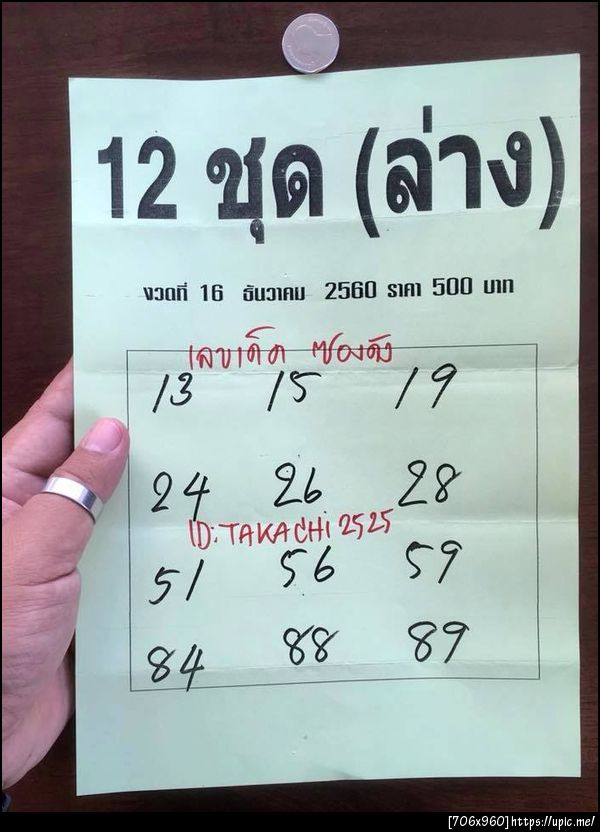 12 ชุด (ล่าง)
งวดที่ 16 ธันวาคม 2560 ราคา 500 บาท
เลขเด็ด ซองดัง
13 15 19
24 26 28
ID: TAKACHi 2525
51 56 59
84 88 89
[706x960]https://upic.me/